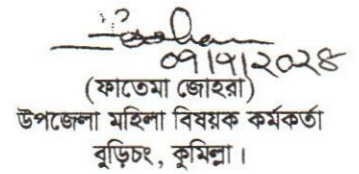 ০৭/৭/২০২৪
(ফাতেমা জোহরা)
উপজেলা মহিলা বিষয়ক কর্মকর্তা
বুড়িচং, কুমিল্লা।